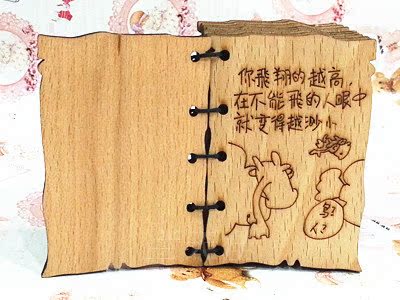 你飛翔的越高，
在不能飛的人眼中
就变得越渺小